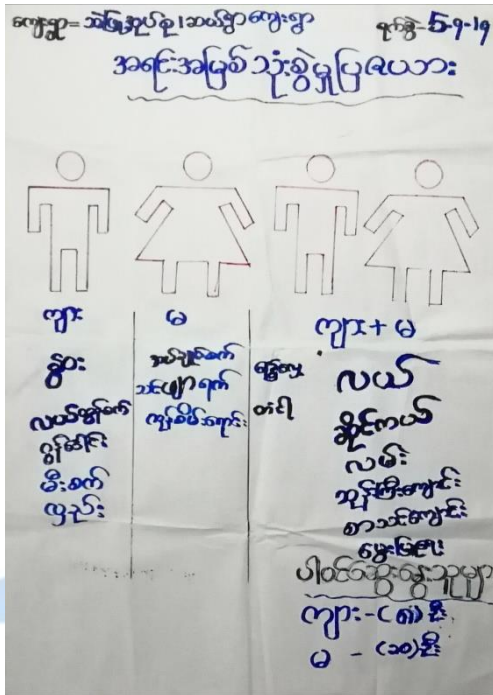 ကျေးရွာ = သဲဖြူအုပ်စု၊ ဆယ်ရွာကျေးရွာ
ရက်စွဲ - 5-9-19
အရင်းအမြစ်သုံးစွဲမှုပြဇယား
ကျား
မ
ကျား + မ
နွား
လယ်ထွန်စက်
ထွန်တောင်း
မီးစက်
လှည်း
အပ်ချုပ်စက်
သင်ဖျာရက်
တံငါ
လယ်
ဆိုင်ကယ်
လမ်း
ဘုန်းကြီးကျောင်း
စာသင်ကျောင်း
မွေးမြူရေး
ပါဝင်ဆွေးနွေးသူများ
ကျား - (၈) ဦး
မ - (၁၁) ဦး